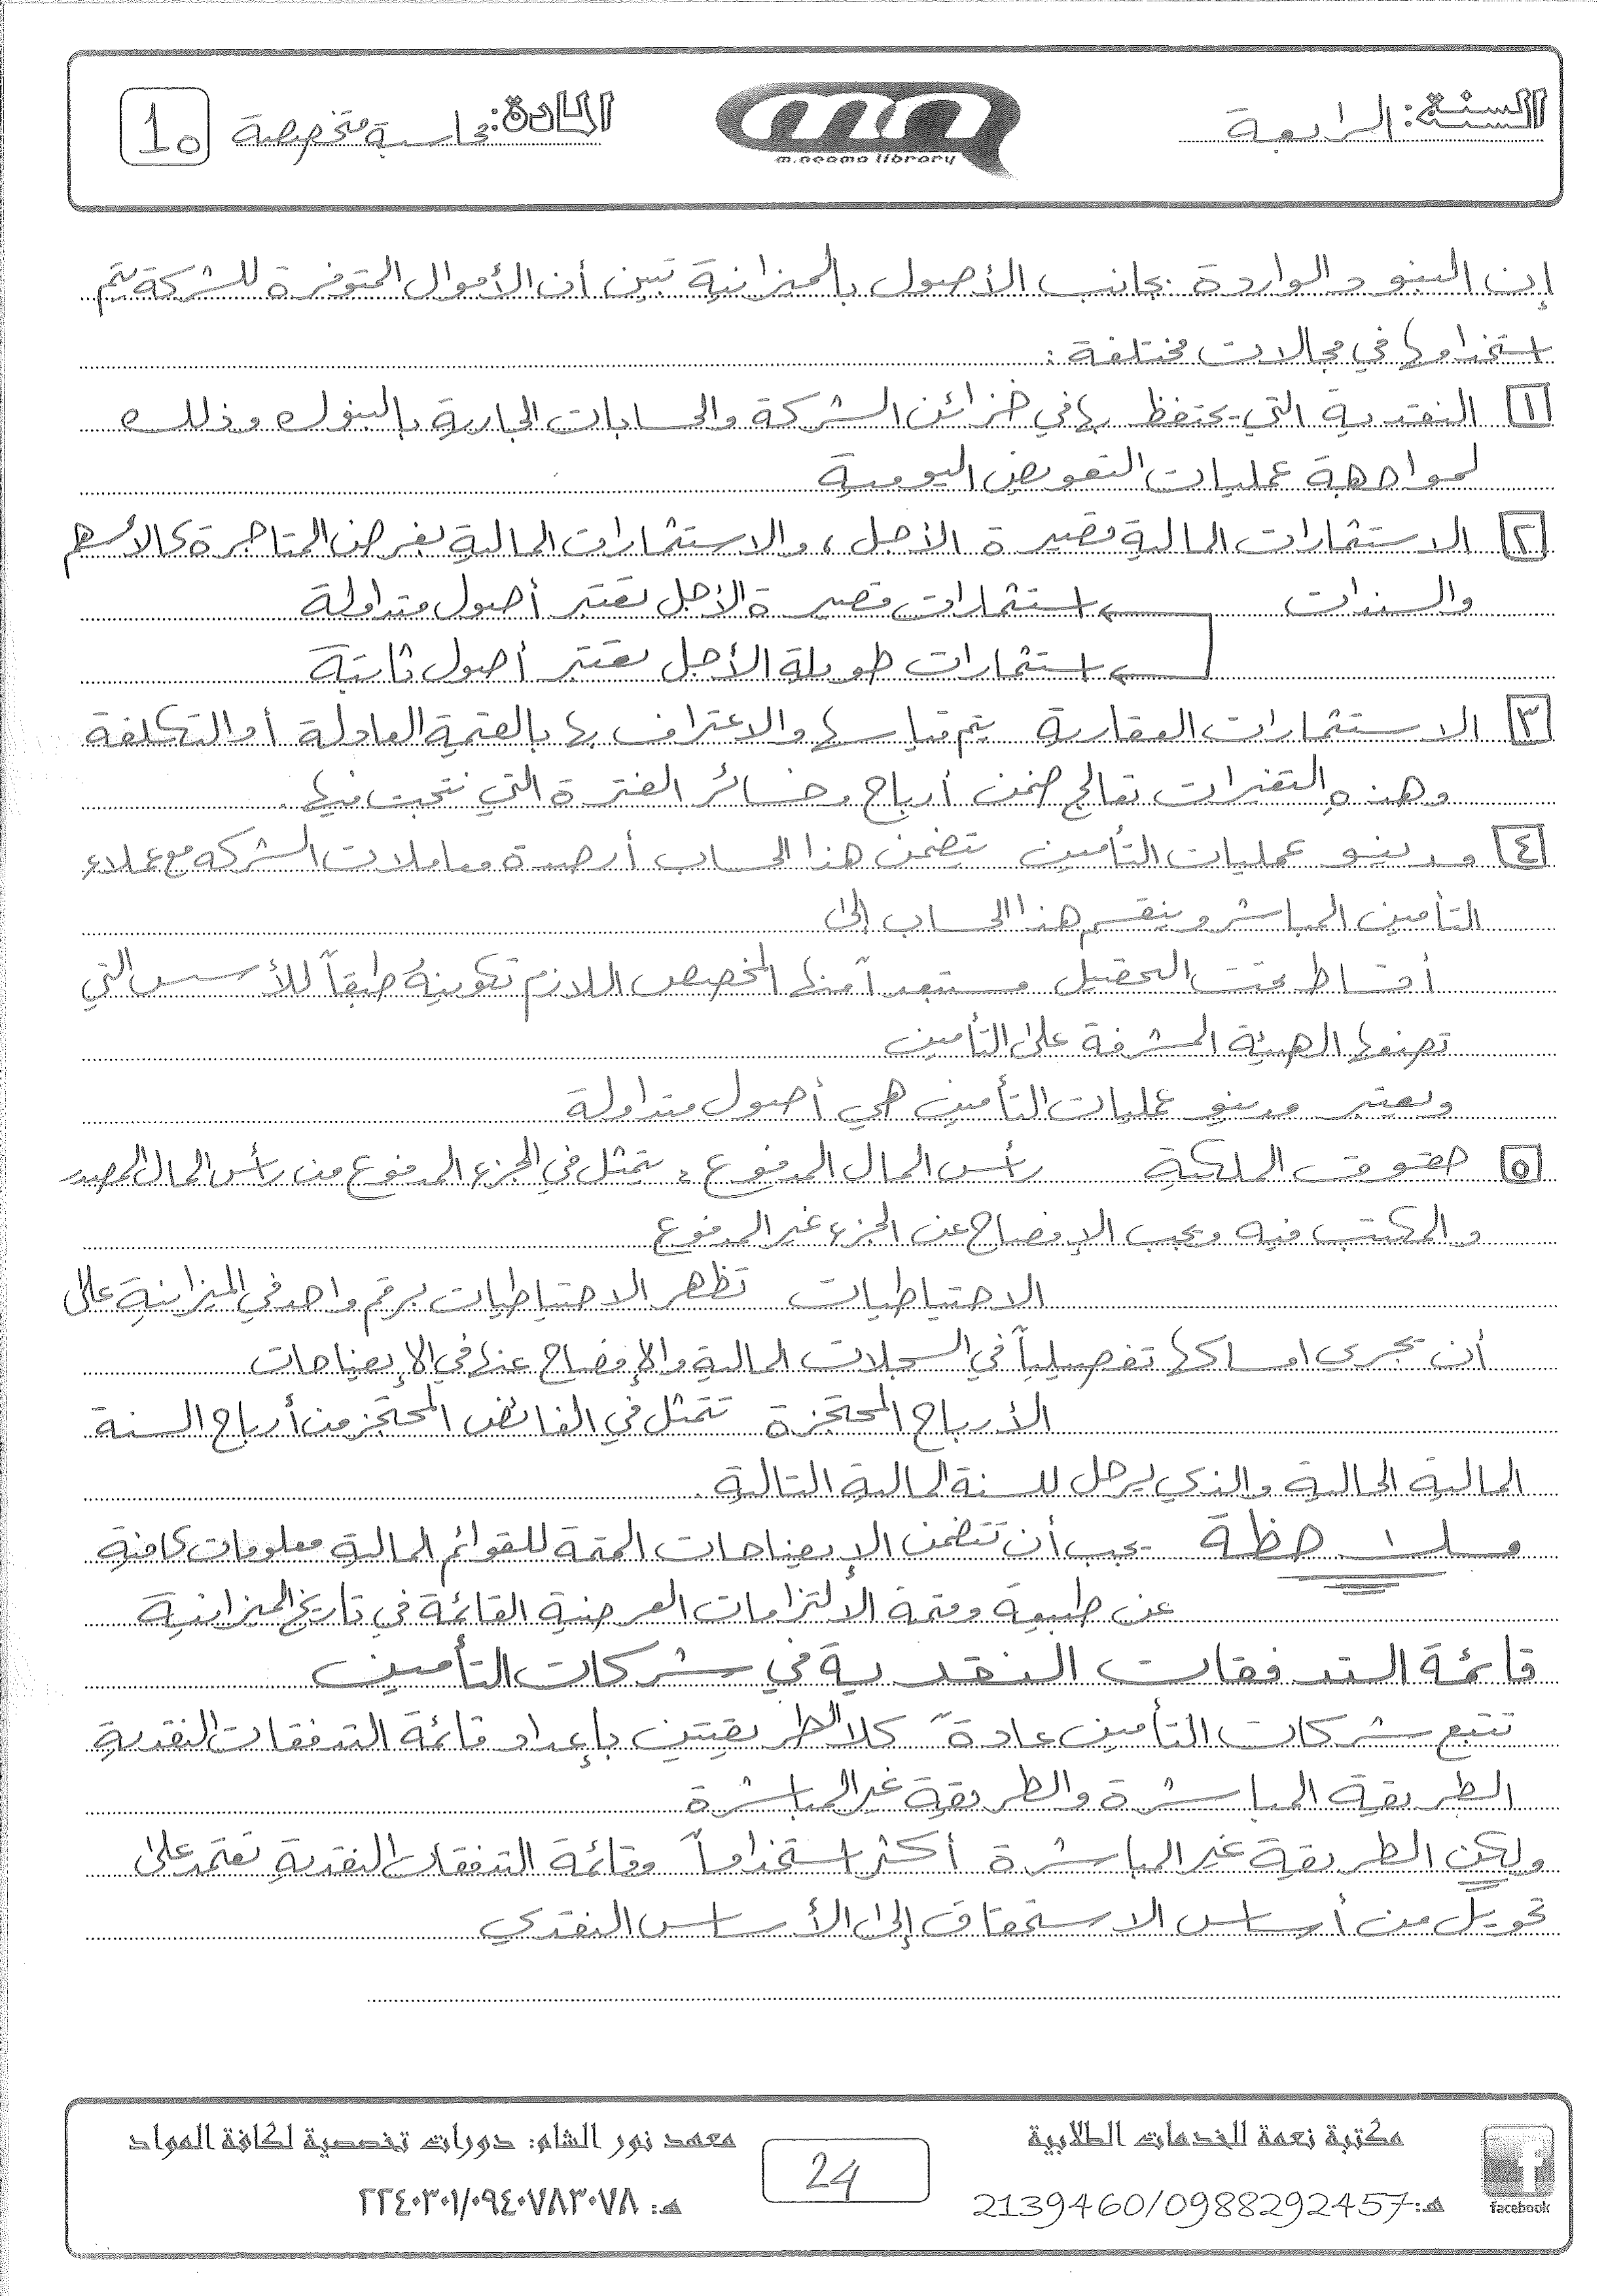 السنة: الرابعة
m.neama library
المادة: محاسبة متخصصة
10
إن البنود الواردة بجانب الأصول بالميزانية تبين أن الأموال المتوفرة للشركة يتم
استخدامها في مجالات مختلفة :
١ النقدية التي يحتفظ بها في خزائن الشركة والحسابات الجارية بالبنوك وذلك
لمواجهة عمليات التعويض اليومية
٢ الاستثمارات المالية قصيرة الأجل ، والاستثمارات المالية بغرض المتاجرة كالأسهم
والسندات ← استثمارات قصيرة الأجل تعتبر أصول متداولة
← استثمارات طويلة الأجل تعتبر أصول ثابتة
٣ الاستثمارات العقارية يتم قياسها والاعتراف بها بالقيمة العادلة أو التكلفة
وهذه التغيرات تعالج ضمن أرباح وخسائر الفترة التي نتجت فيها.
٤ مدينو عمليات التأمين يتضمن هذا الحساب أرصدة معاملات الشركة مع عملاء
التأمين المباشر وينقسم هذا الحساب إلى
أقساط تحت التحصيل مستبعداً منها المخصص اللازم تكوينه طبقاً للأسس التي
تضعها الهيئة المشرفة على التأمين
ويعتبر مدينو عمليات التأمين هي أصول متداولة
٥ حقوق الملكية رأس المال المدفوع : يتمثل في الجزء المدفوع من رأس المال المصدر
والمكتتب فيه ويجب الإفصاح عن الجزء غير المدفوع
الاحتياطيات تظهر الاحتياطيات برقم واحد في الميزانية على
أن يجرى امساكها تفصيلياً في السجلات المالية والإفصاح عنها في الإيضاحات
الأرباح المحتجزة تتمثل في الفائض المحتجز من أرباح السنة
المالية الحالية والذي يرحل للسنة المالية التالية.
ملاحظة يجب أن تتضمن الإيضاحات المتممة للقوائم المالية معلومات كافية
عن طبيعة وقيمة الالتزامات العرضية القائمة في تاريخ الميزانية
قائمة التدفقات النقدية في شركات التأمين
تتبع شركات التأمين عادةً كلا الطريقتين بإعداد قائمة التدفقات النقدية
الطريقة المباشرة والطريقة غير المباشرة
ولكن الطريقة غير المباشرة أكثر استخداماً وقائمة التدفقات النقدية تعتمد على
تحويل من أساس الاستحقاق إلى الأساس النقدي
مكتبة نعمة للخدمات الطلابية
هـ: 2139460/0988292457
facebook
24
معهد نور الشام: دورات تخصصية لكافة المواد
هـ: ٢٢٤٠٣٠١/٠٩٤٠٧٨٣٠٧٨